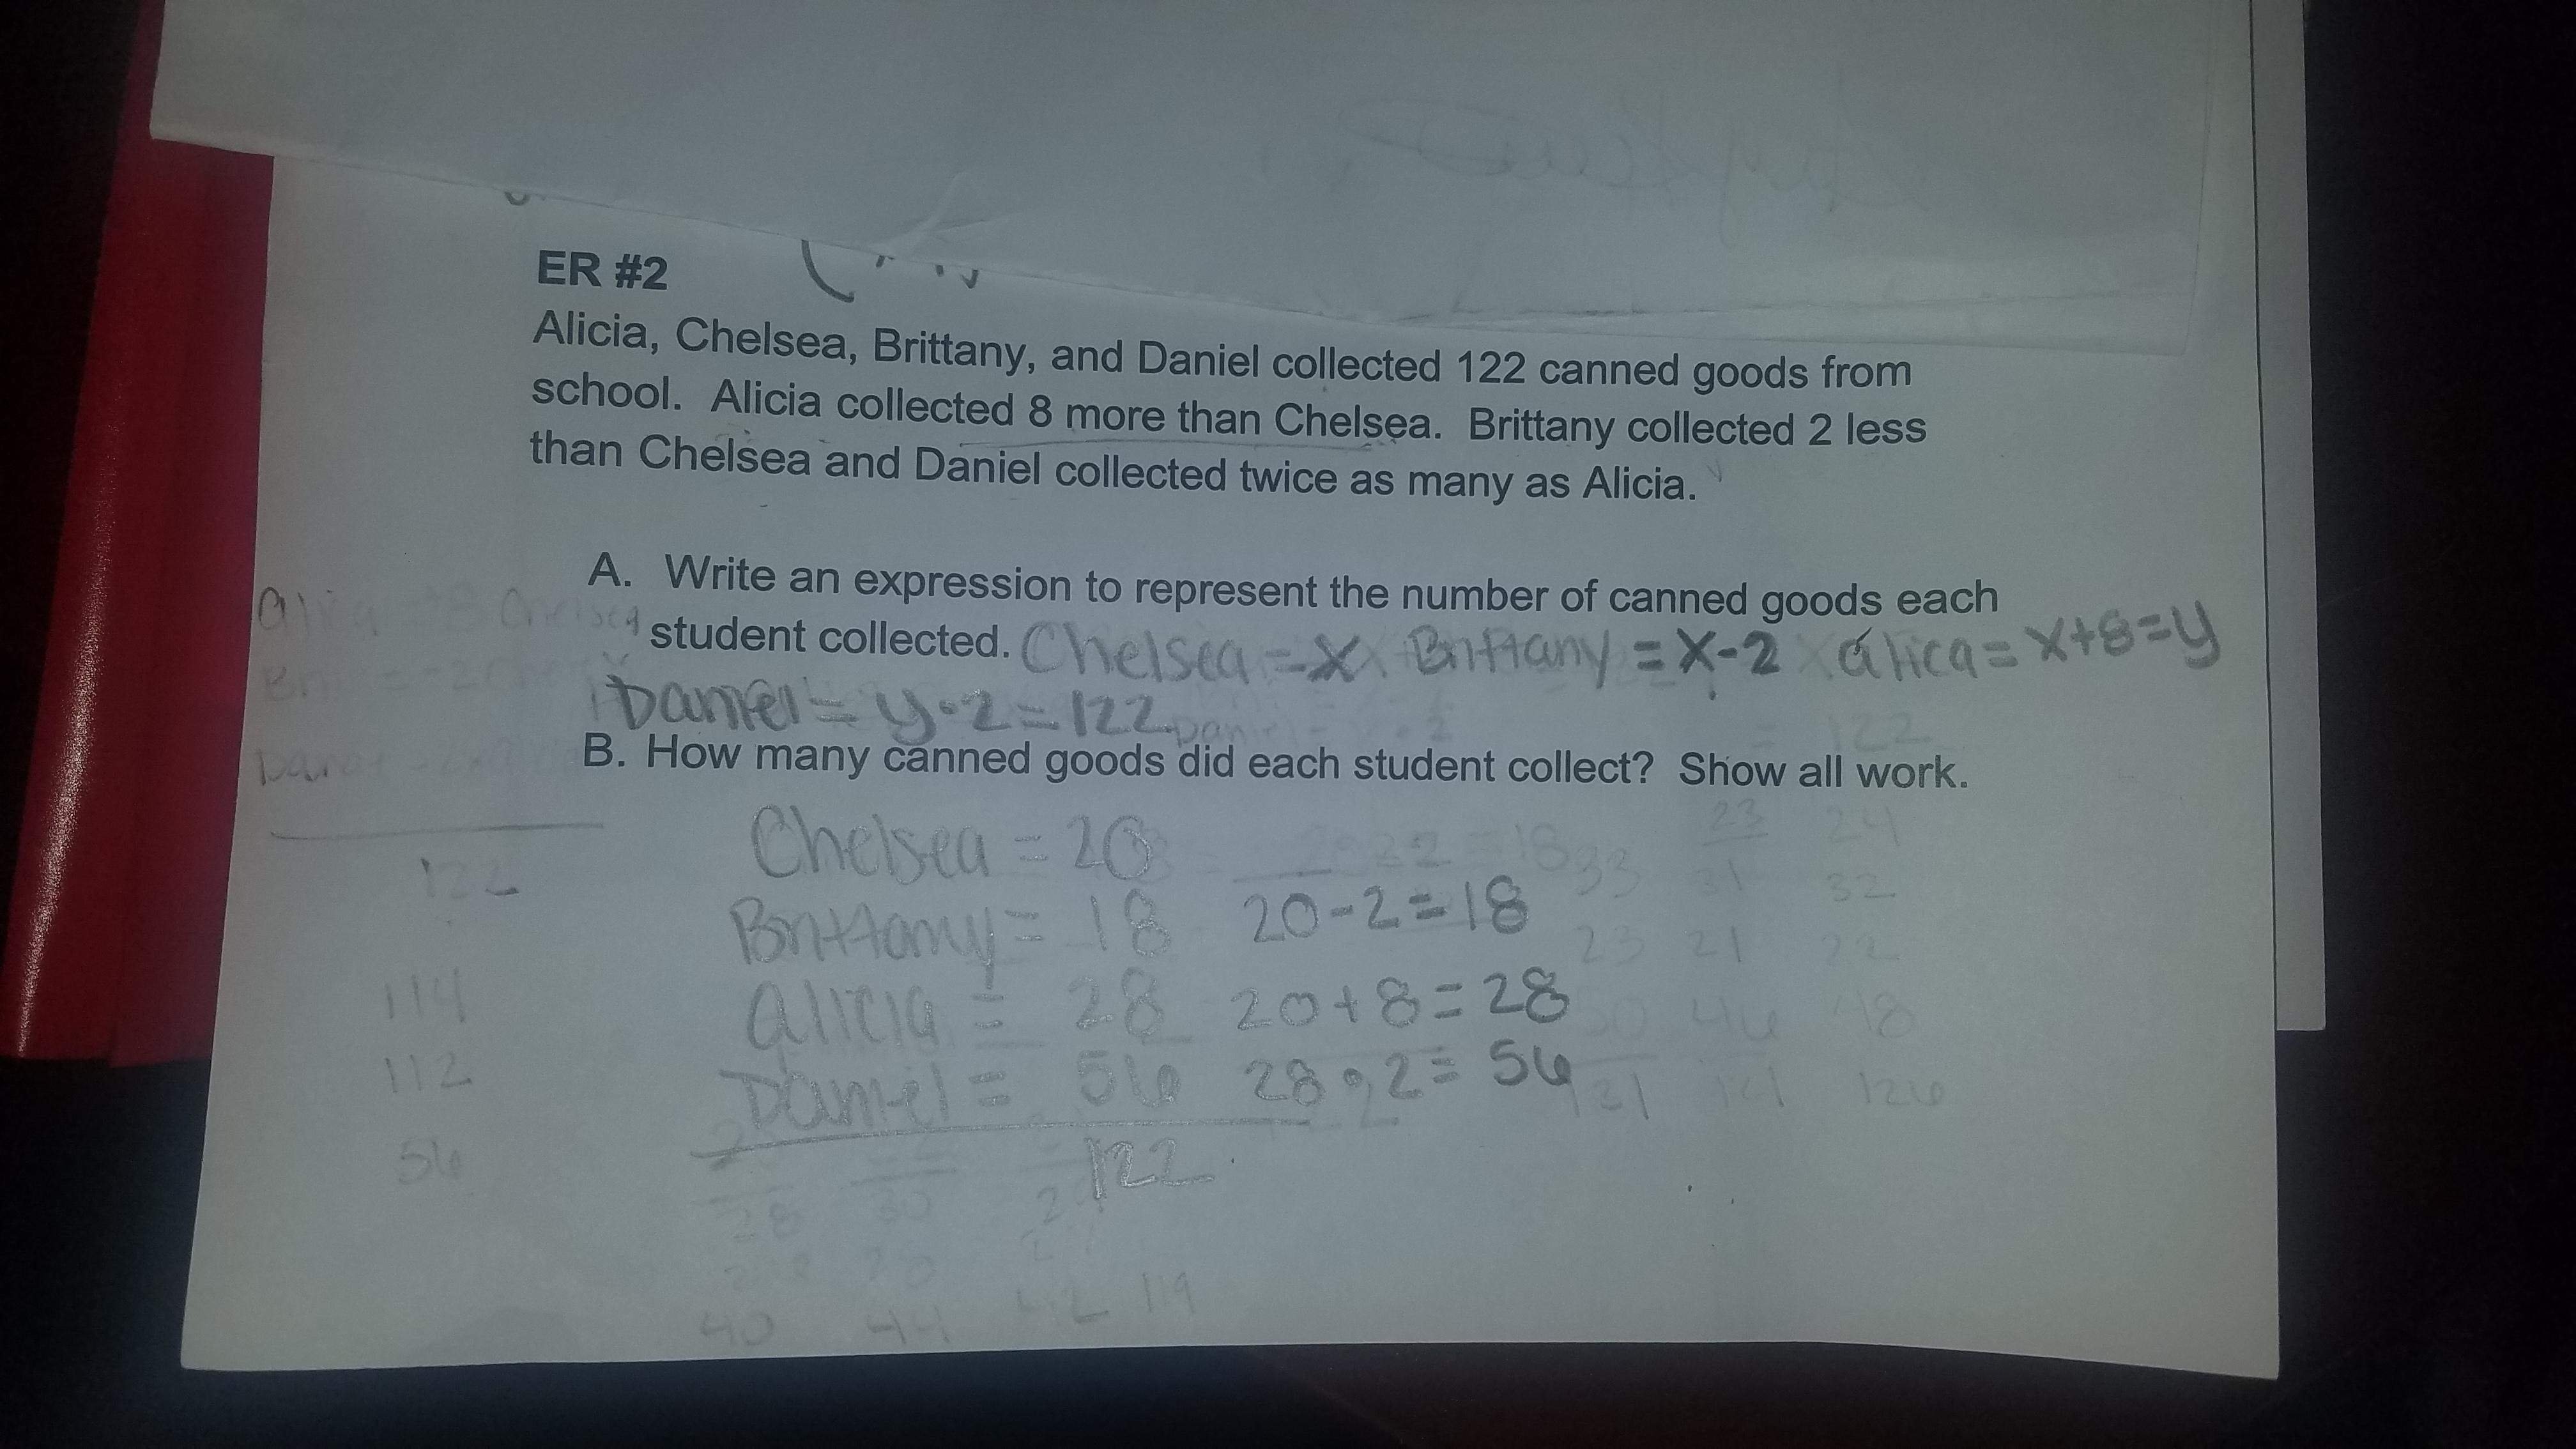 ER #2
Alicia, Chelsea, Brittany, and Daniel collected 122 canned goods from
school. Alicia collected 8 more than Chelsea. Brittany collected 2 less
than Chelsea and Daniel collected twice as many as Alicia.
A. Write an expression to represent the number of canned goods each
student collected. Chelsea = x Brittany = x-2 alica = x+8=y
Daniel = y•2=122
B. How many canned goods did each student collect? Show all work.
Chelsea = 20
Brittany = 18 20-2=18
alicia = 28 20+8=28
Daniel = 56 28•2= 56
122
122
114
112
56
23 24
33 31 32
23 21 22
121 126
28 30
40 44 42 119